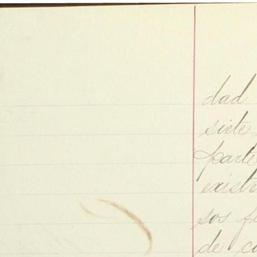 dad
siete
parte
existi
sos f
de c